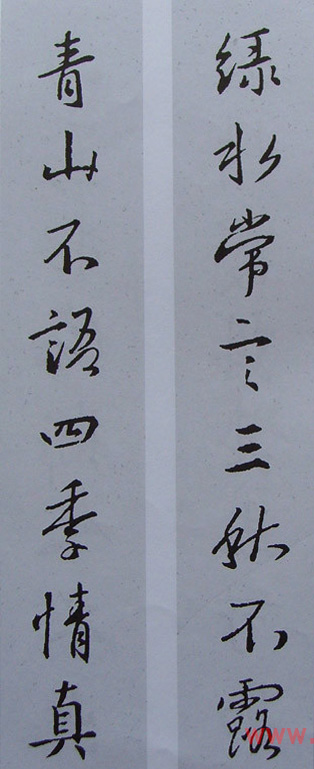 绿水常言三秋不露
青山不語四季情真
www.